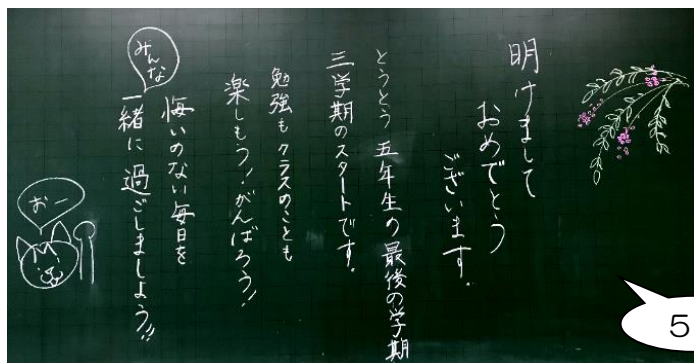 明けまして
おめでとう
ございます.
とうとう五年生の最後の学期
三学期のスタートです.
勉強もクラスのことも
楽しもう!がんばろう!
悔いのない毎日を
みんな
一緒に過ごしましよう!!
おー
5